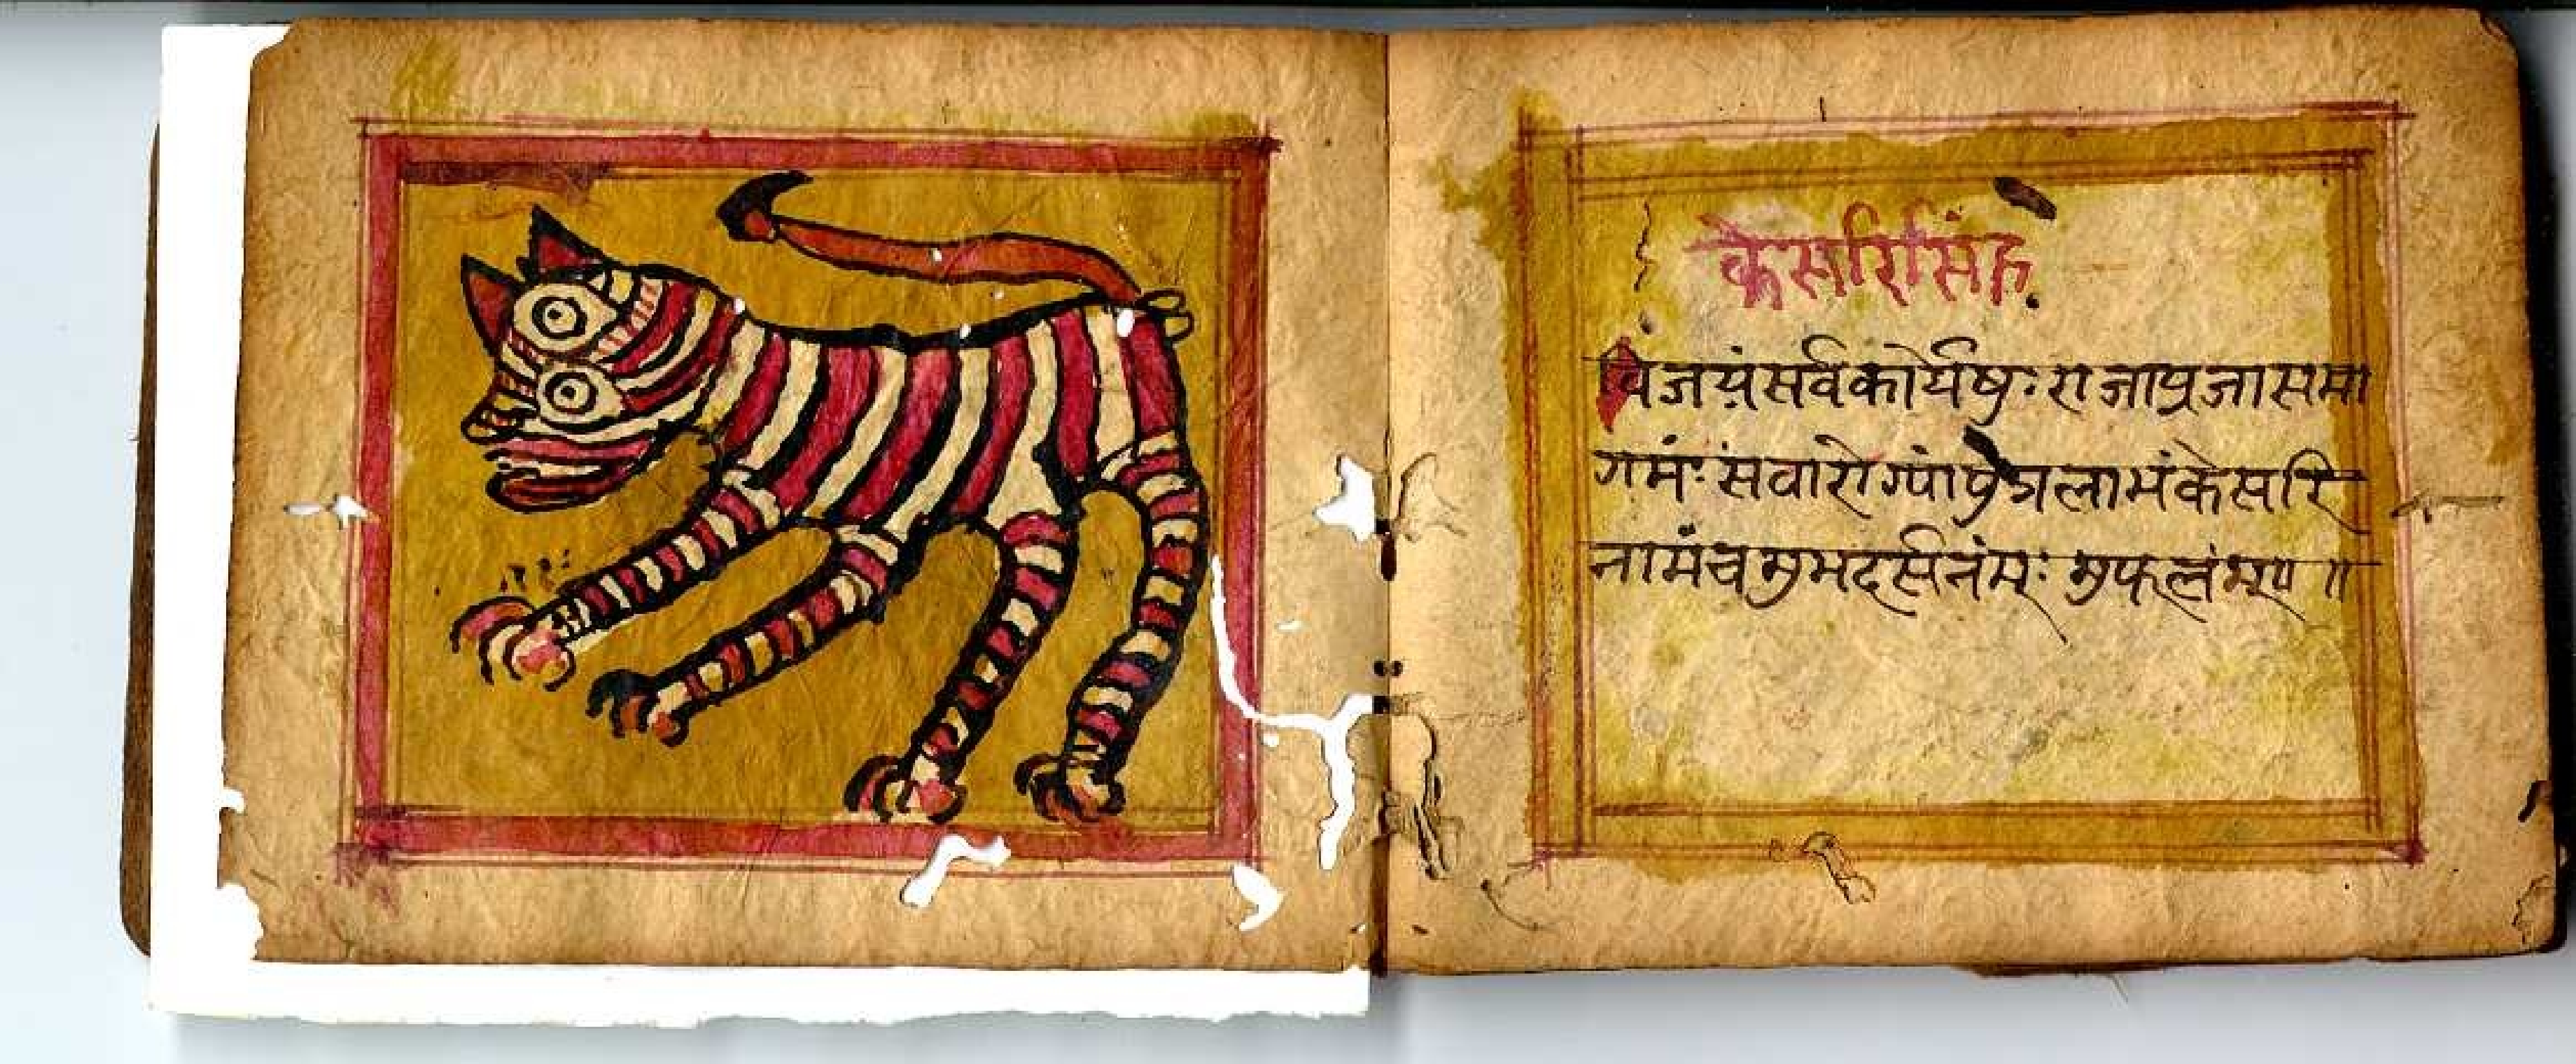 केसरिसिंह
विजयंसर्वकार्येषुः राजाप्रजासमा
गमंः सवारोग्यांपुत्रलाभंकेसरि
नामंचसुभदर्सनंम्ः सुफलंम्॥ ॥